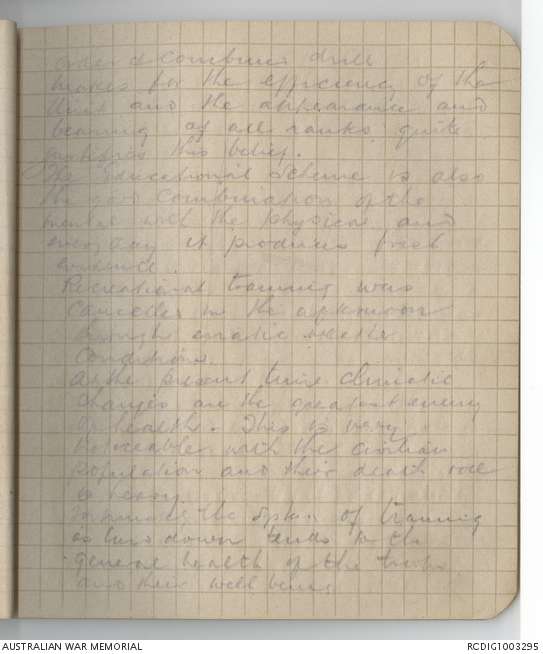 order combined drill
makes for the efficiency of the
Unit and the appearance and
bearing of all ranks quite
justifies this belief.
The Educational Scheme is also
the good combination of the
mental with the physical and
every day it produces fresh
evidence.
Recreational training was
cancelled in the afternoon
through erratic weather
Conditions.
At the present time climatic
changes are the greatest enemy
of health. This is very
noticeable with the civilian
Population and their death rate
is heavy.
the system of training
as laid down tends to the
general health of the troops
and their well being
AUSTRALIAN WAR MEMORIAL
RCDIG1003295